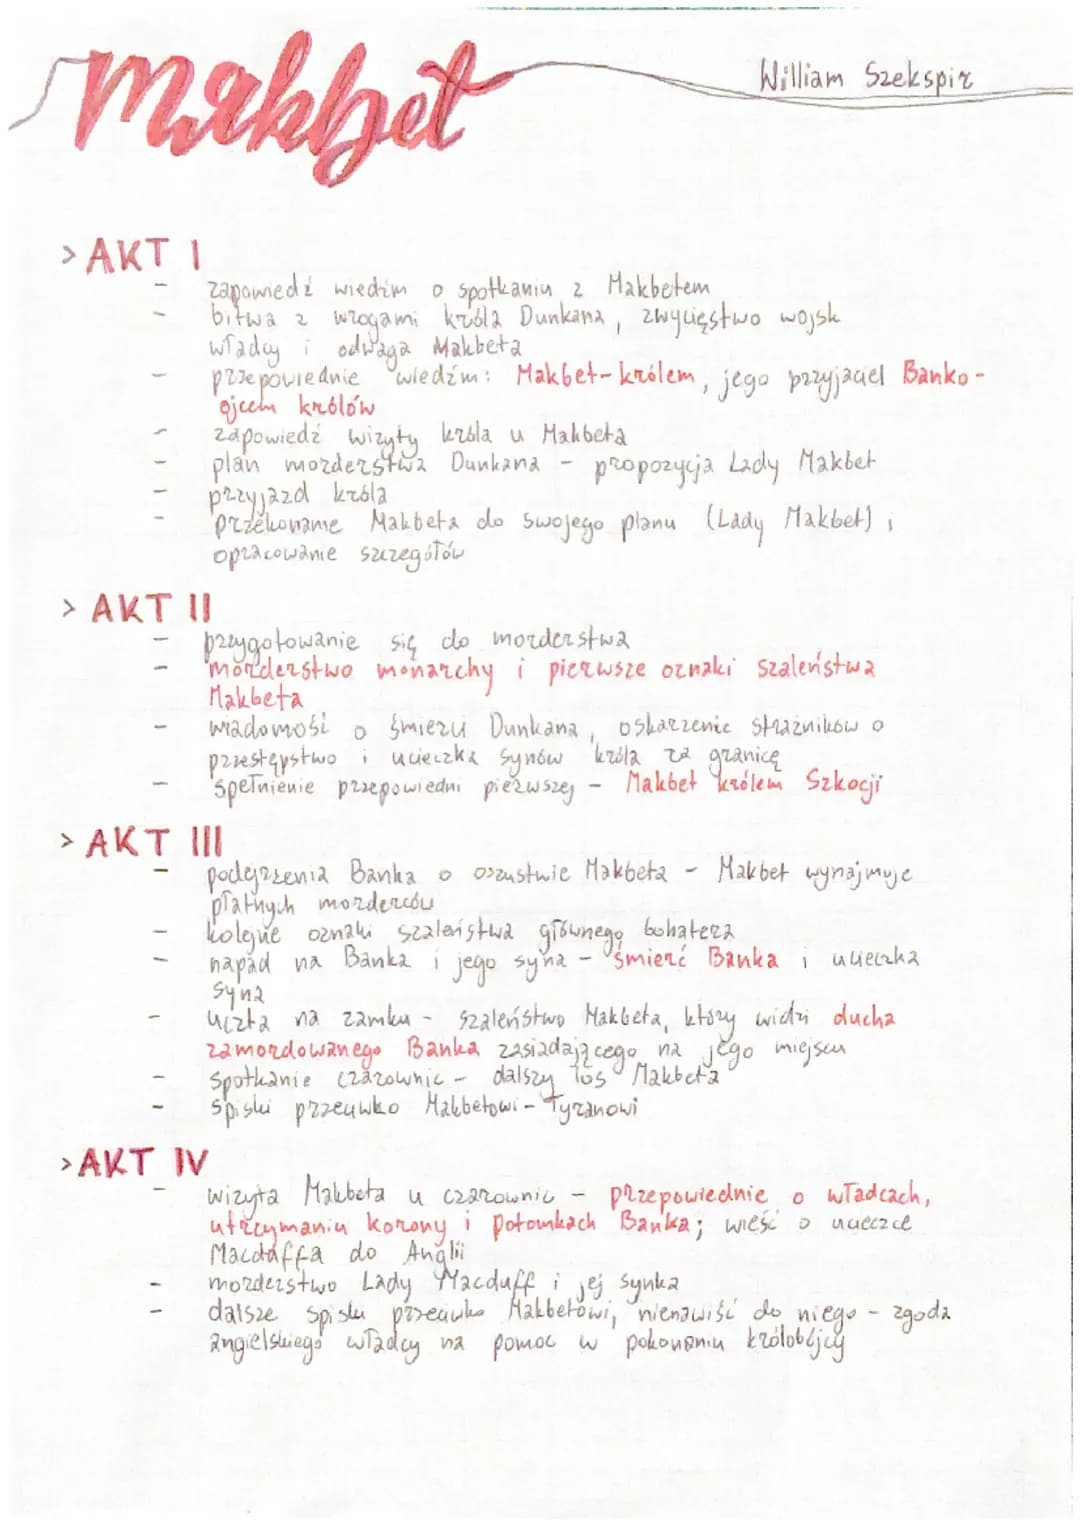 makbet
William Szekspir
> AKT I
- zapowiedź wiedźm o spotkaniu z Makbetem
- bitwa z wrogami króla Dunkana, zwycięstwo wojsk
władcy i odwaga Makbeta
- przepowiednie wiedźm: Makbet-królem, jego przyjaciel Banko-
ojcem królów
- zapowiedź wizyty króla u Makbeta
- plan morderstwa Dunkana - propozycja Lady Makbet
- przyjazd króla
- przekonanie Makbeta do swojego planu (Lady Makbet) i
opracowanie szczegółów
> AKT II
- przygotowanie się do morderstwa
- morderstwo monarchy i pierwsze oznaki szaleństwa
Makbeta
- wiadomość o śmierci Dunkana, oskarżenie strażników o
przestępstwo i ucieczka synów króla za granicę
- spełnienie przepowiedni pierwszej - Makbet królem Szkocji
> AKT III
- podejrzenia Banka o oszustwie Makbeta - Makbet wynajmuje
płatnych morderców
- kolejne oznaki szaleństwa głównego bohatera
- napad na Banka i jego syna - śmierć Banka i ucieczka
syna
- uczta na zamku - szaleństwo Makbeta, który widzi ducha
zamordowanego Banka zasiadającego na jego miejscu
- spotkanie czarownic - dalszy los Makbeta
- spiski przeciwko Makbetowi - Tyranowi
> AKT IV
- wizyta Makbeta u czarownic - przepowiednie o władcach,
utrzymaniu korony i potomkach Banka; wieść o ucieczce
Macduffa do Anglii
- morderstwo Lady Macduff i jej synka
- dalsze spiski przeciwko Makbetowi, nienawiść do niego - zgoda
angielskiego władcy na pomoc w pokonaniu królobójcy